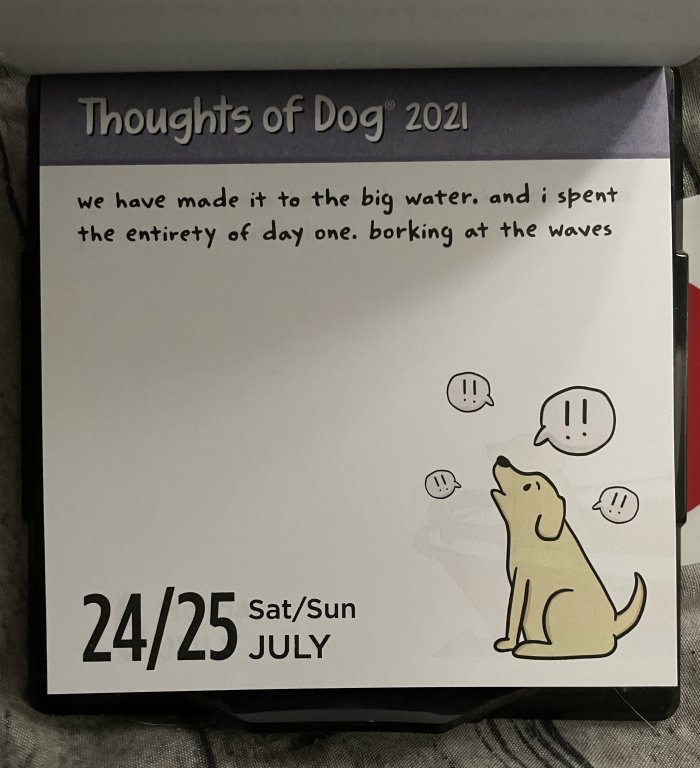 Thoughts of Dog® 2021
we have made it to the big water. and i spent
the entirety of day one. borking at the waves
!!
!!
!!
!!
24/25 Sat/Sun
JULY